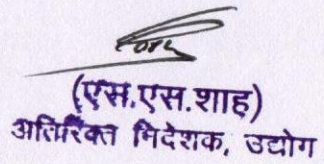 (एस.एस.शाह)
अतिरिक्त निदेशक, उद्योग